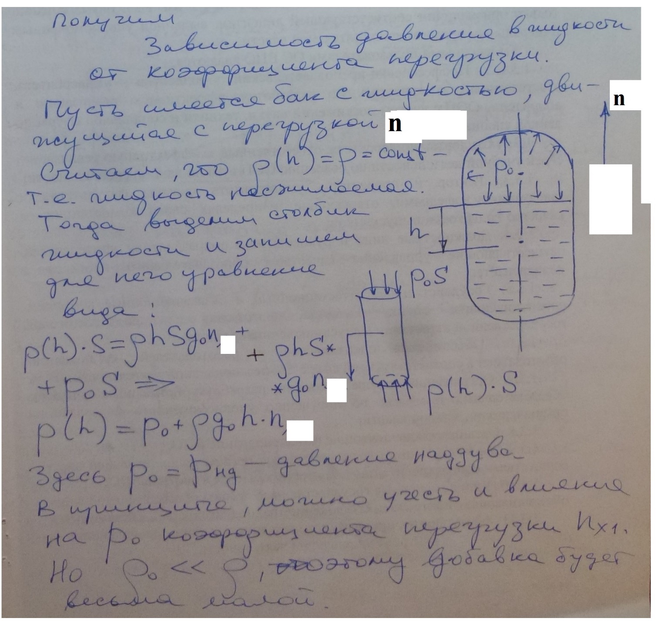 Получим
Зависимость давления в жидкости
от коэффициента перегрузки.
Пусть имеется бак с жидкостью, дви-
жущийся с перегрузкой n
n
Считаем, что ρ(h) = ρ = const –
т.е. жидкость несжимаемая.
p₀
Тогда выделим столбик
h
жидкости и запишем
для него уравнение
p₀S
вида:
p(h)·S = ρhSg₀n +
+ ρhS*
+ p₀S ⇒
*g₀n
p(h)·S
p(h) = p₀ + ρg₀h·n
Здесь p₀ = pнд — давление наддува.
В принципе, можно учесть и влияние
на p₀ коэффициента перегрузки nx1.
Но ρ₀ << ρ, поэтому добавка будет
весьма малой.